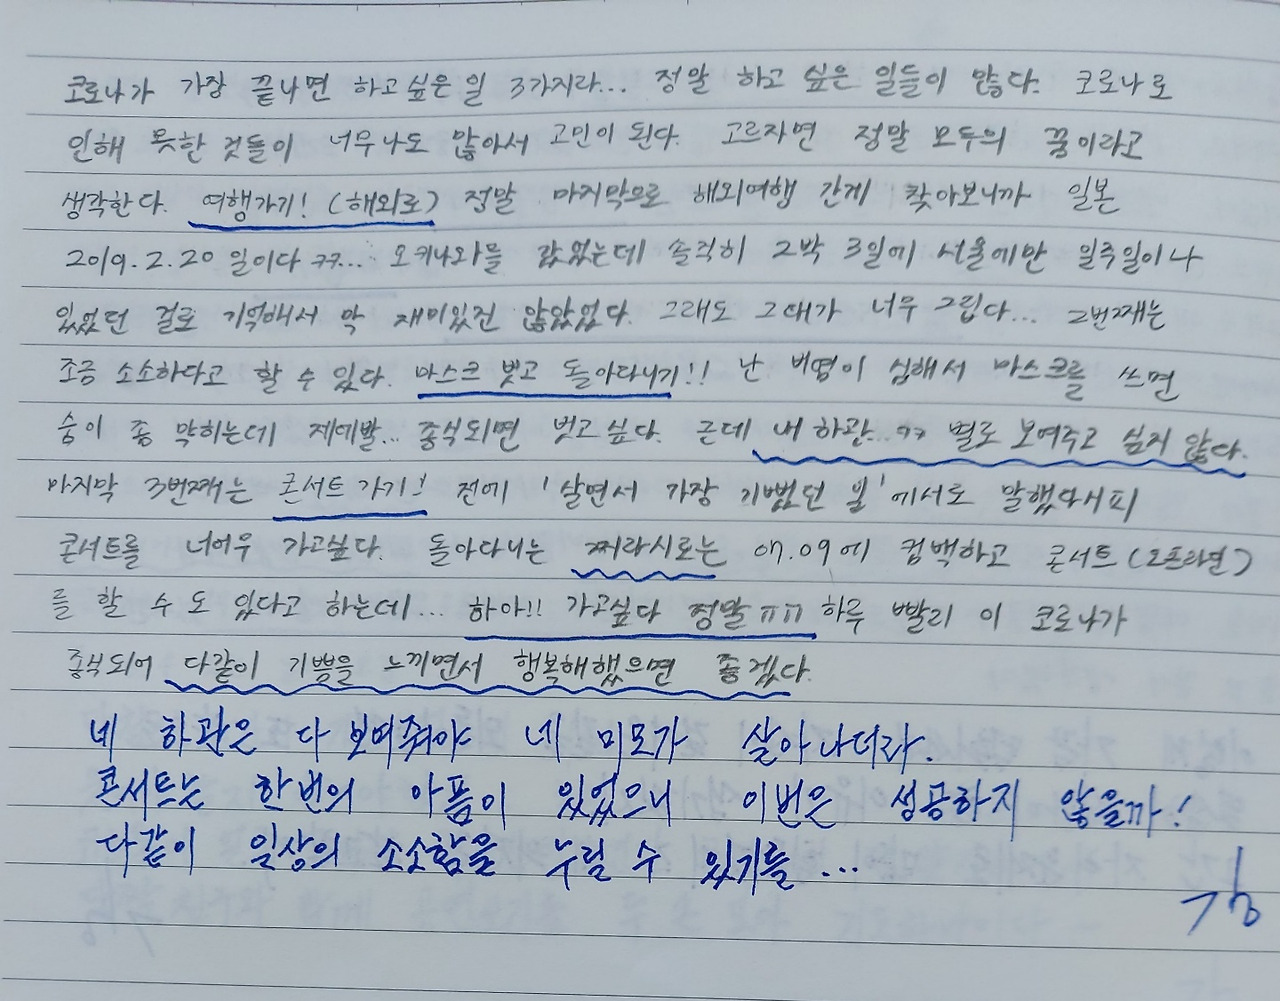 코로나가 가장 끝나면 하고싶은일 3가지라... 정말 하고 싶은 일들이 많다. 코로나로
인해 못한 것들이 너무나도 많아서 고민이 된다. 고르자면 정말 모두의 꿈이라고
생각한다. 여행가기! (해외로) 정말 마지막으로 해외여행 간게 찾아보니까 일본
2019. 2. 20 일이다 ㅋㅋ... 오키나와를 갔었는데 솔직히 2박 3일에 서울에만 일주일이나
있었던 걸로 기억해서 막 재미있진 않았었다. 그래도 그때가 너무 그립다... 2번째는
조금 소소하다고 할 수 있다. 마스크 벗고 돌아다니기!! 난 비염이 심해서 마스크를 쓰면
숨이 좀 막히는데 제에발... 종식되면 벗고싶다. 근데 내 하관...ㅋㅋ 별로 보여주고 싶지 않다.
마지막 3번째는 콘서트 가기! 전에 '살면서 가장 기뻤던 일'에서도 말했다시피
콘서트를 너어무 가고싶다. 돌아다니는 찌라시로는 07.09에 컴백하고 콘서트(오프라인)
를 할 수 도 있다고 하는데... 하아!! 가고싶다 정말ㅠㅠ 하루 빨리 이 코로나가
종식되어 다같이 기쁨을 느끼면서 행복해했으면 좋겠다.
네 하관은 다 보여줘야 네 미모가 살아나더라.
콘서트는 한번의 아픔이 있었으니 이번은 성공하지 않을까!
다같이 일상의 소소함을 누릴 수 있기를...